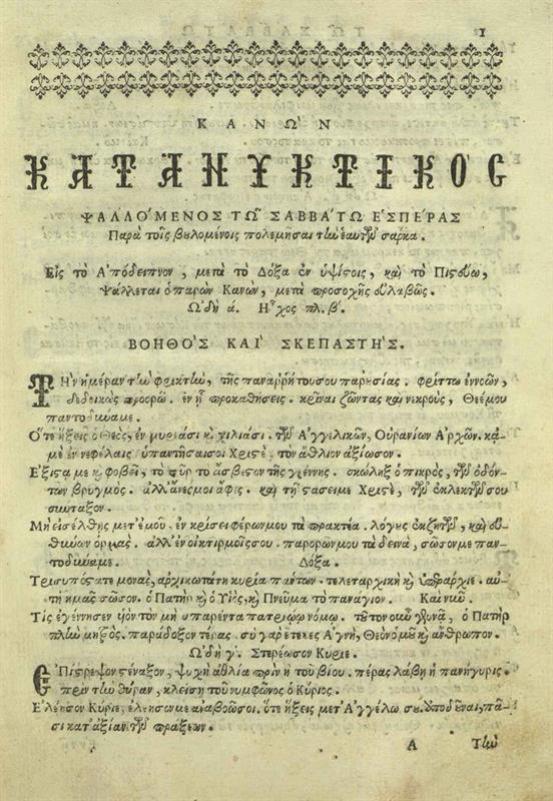 ΚΑΝΩΝ
ΚΑΤΑΝΥΚΤΙΚΟΣ
ΨΑΛΛΟΜΕΝΟΣ ΤΩ ΣΑΒΒΑΤΩ ΕΣΠΕΡΑΣ
Παρὰ τοῖς βουλομένοις πολεμῆσαι τὴν ἑαυτῶν σάρκα.
Εἰς τὸ Ἀπόδειπνον, μετὰ τὸ Δόξα ἐν ὑψίστοις, καὶ τὸ Πιστεύω,
Ψάλλεται ὁ παρὼν Κανὼν, μετὰ προσοχῆς εὐλαβῶς.
Ὠδὴ ά. Ἦχος πλ. β΄.
ΒΟΗΘΟΣ ΚΑΙ ΣΚΕΠΑΣΤΗΣ.
Τὴν ἡμέραν τὴν φρικτὴν, τῆς παναρρήτου σου παρουσίας. φρίττω ἐννοῶν,
δεδοικὼς προορῶ. ἐν ᾗ προκαθήσεις. κρῖναι ζῶντας καὶ νεκροὺς, Θεέ μου
παντοδύναμε.
Ὅτε ἥξεις ὁ Θεὸς, ἐν μυριάσι καὶ χιλιάσι. τῶν Ἀγγελικῶν, Οὐρανίων Ἀρχῶν. κα-
μὲ ἐν νεφέλαις ὑπαντῆσαί σοι Χριστὲ. τὸν ἄθλιον ἀξίωσον.
Ἐξιστᾷ με καὶ φοβεῖ, τὸ πῦρ τὸ ἄσβεστον τῆς γεέννης. σκώληξ ὁ πικρὸς, τῶν ὀδόν-
των βρυγμός. ἀλλ' ἄνες μοι ἄφες. καὶ τῇ στάσει με Χριστὲ, τῶν ἐκλεκτῶν σου
σύνταξον.
Μὴ εἰσέλθῃς μετ' ἐμοῦ. ἐν κρίσει φέρων μου τὰ πρακτέα. λόγους ἐκζητῶν, καὶ εὐ-
θύνων ὁρμάς. ἀλλ' ἐν οἰκτιρμοῖς σου. παρορῶν μου τὰ δεινὰ, σῶσόν με παν-
τοδύναμε. Δόξα.
Τρισυπόστατε μονὰς, ἀρχικωτάτη κυρία πάντων. τελεταρχικὴ καὶ ὑπεράρχιε. αὐ-
τὴ ἡμᾶς σῶσον. ὁ Πατὴρ καὶ ὁ Υἱὸς, καὶ Πνεῦμα τὸ πανάγιον. Καὶ νῦν.
Τίς ἐγέννησεν υἱὸν τὸν μὴ σπαρέντα πατρῴῳ νόμῳ. τοῦτον οὖν γεννᾷ, ὁ Πατὴρ
πλὴν μητρός. παράδοξον τέρας. σὺ γὰρ ἔτεκες Ἁγνὴ, Θεὸν ὁμοῦ καὶ ἄνθρωπον.
Ὠδὴ γ΄. Στερέωσον Κύριε.
Ἐπίστρεψον στέναξον, ψυχὴ ἀθλία πρὶν ἢ τοῦ βίου. πέρας λάβῃ ἡ πανήγυρις.
πρὶν τὴν θύραν, κλείσῃ τοῦ νυμφῶνος ὁ Κύριος.
Ἐλέησον Κύριε, ἐλέησόν με ἀναβοῶ σοι. ὅτε ἥξεις μετ' Ἀγγέλων σου. ἀποδοῦναι, πᾶ-
σι κατ' ἀξίαν τῶν πράξεων.
Α Τὴν